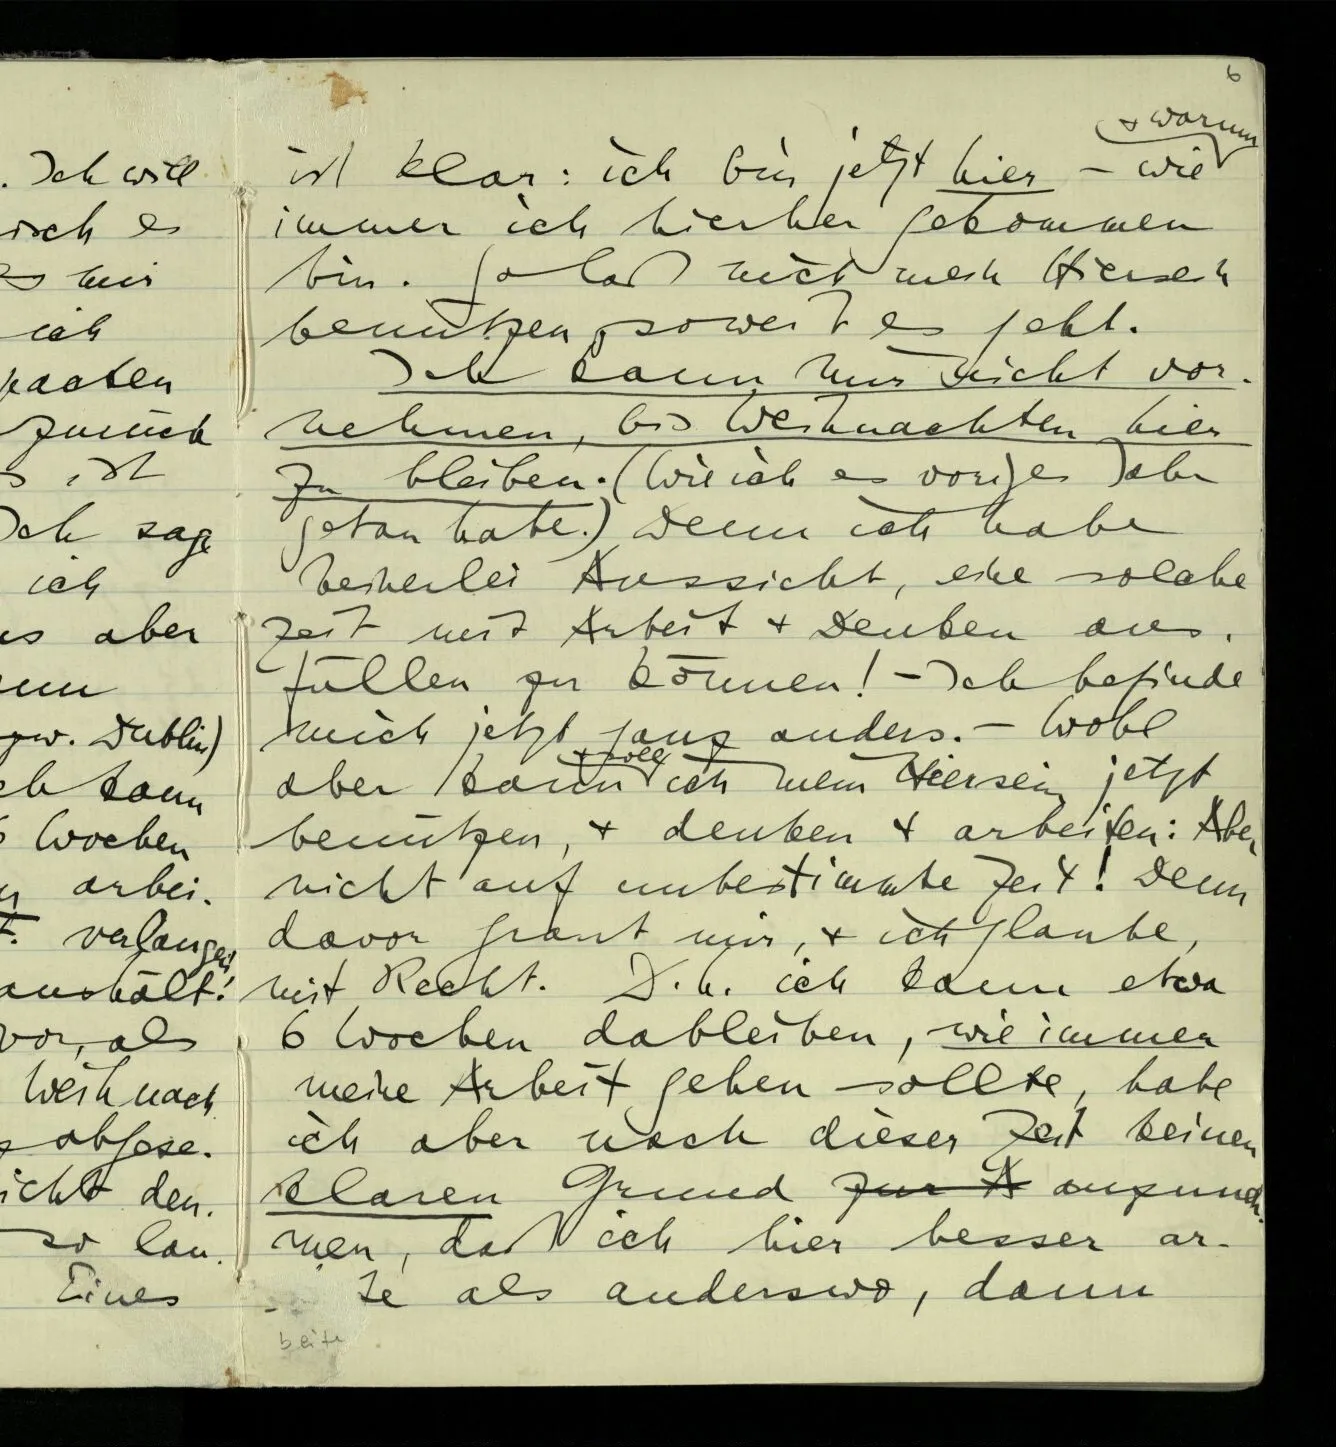 6
. Ich will
isch es
mir
ich
packen
zurück
ist
Ich sage
ich
aber
Dublin)
kann
6 Wochen
arbei.
verlangen
aushält!
vor, als
Weihnach
abgese.
nicht den.
so lan.
Eines
+ warum
ist klar: ich bin jetzt hier – wie
immer ich hierher gekommen
bin. So laß mich mein Hiersein
benützen, soweit es geht.
Ich kann mir nicht vor-
nehmen, bis Weihnachten hier
zu bleiben. (Wie ich es voriges Jahr
getan habe.) Denn ich habe
keinerlei Aussicht, eine solche
Zeit mit Arbeit + Denken aus.
füllen zu können! – Ich befinde
mich jetzt ganz anders. – Wohl
+ soll
aber kann ich mein Hiersein jetzt
benützen, + denken + arbeiten: Aber
nicht auf unbestimmte Zeit! Denn
davor graut mir, + ich glaube,
mit Recht. D.h. ich kann etwa
6 Wochen dableiben, wie immer
meine Arbeit gehen sollte, habe
ich aber nach dieser Zeit keinen
klaren Grund zur A anzuneh.
men, daß ich hier besser ar-
te als anderswo, dann
beite